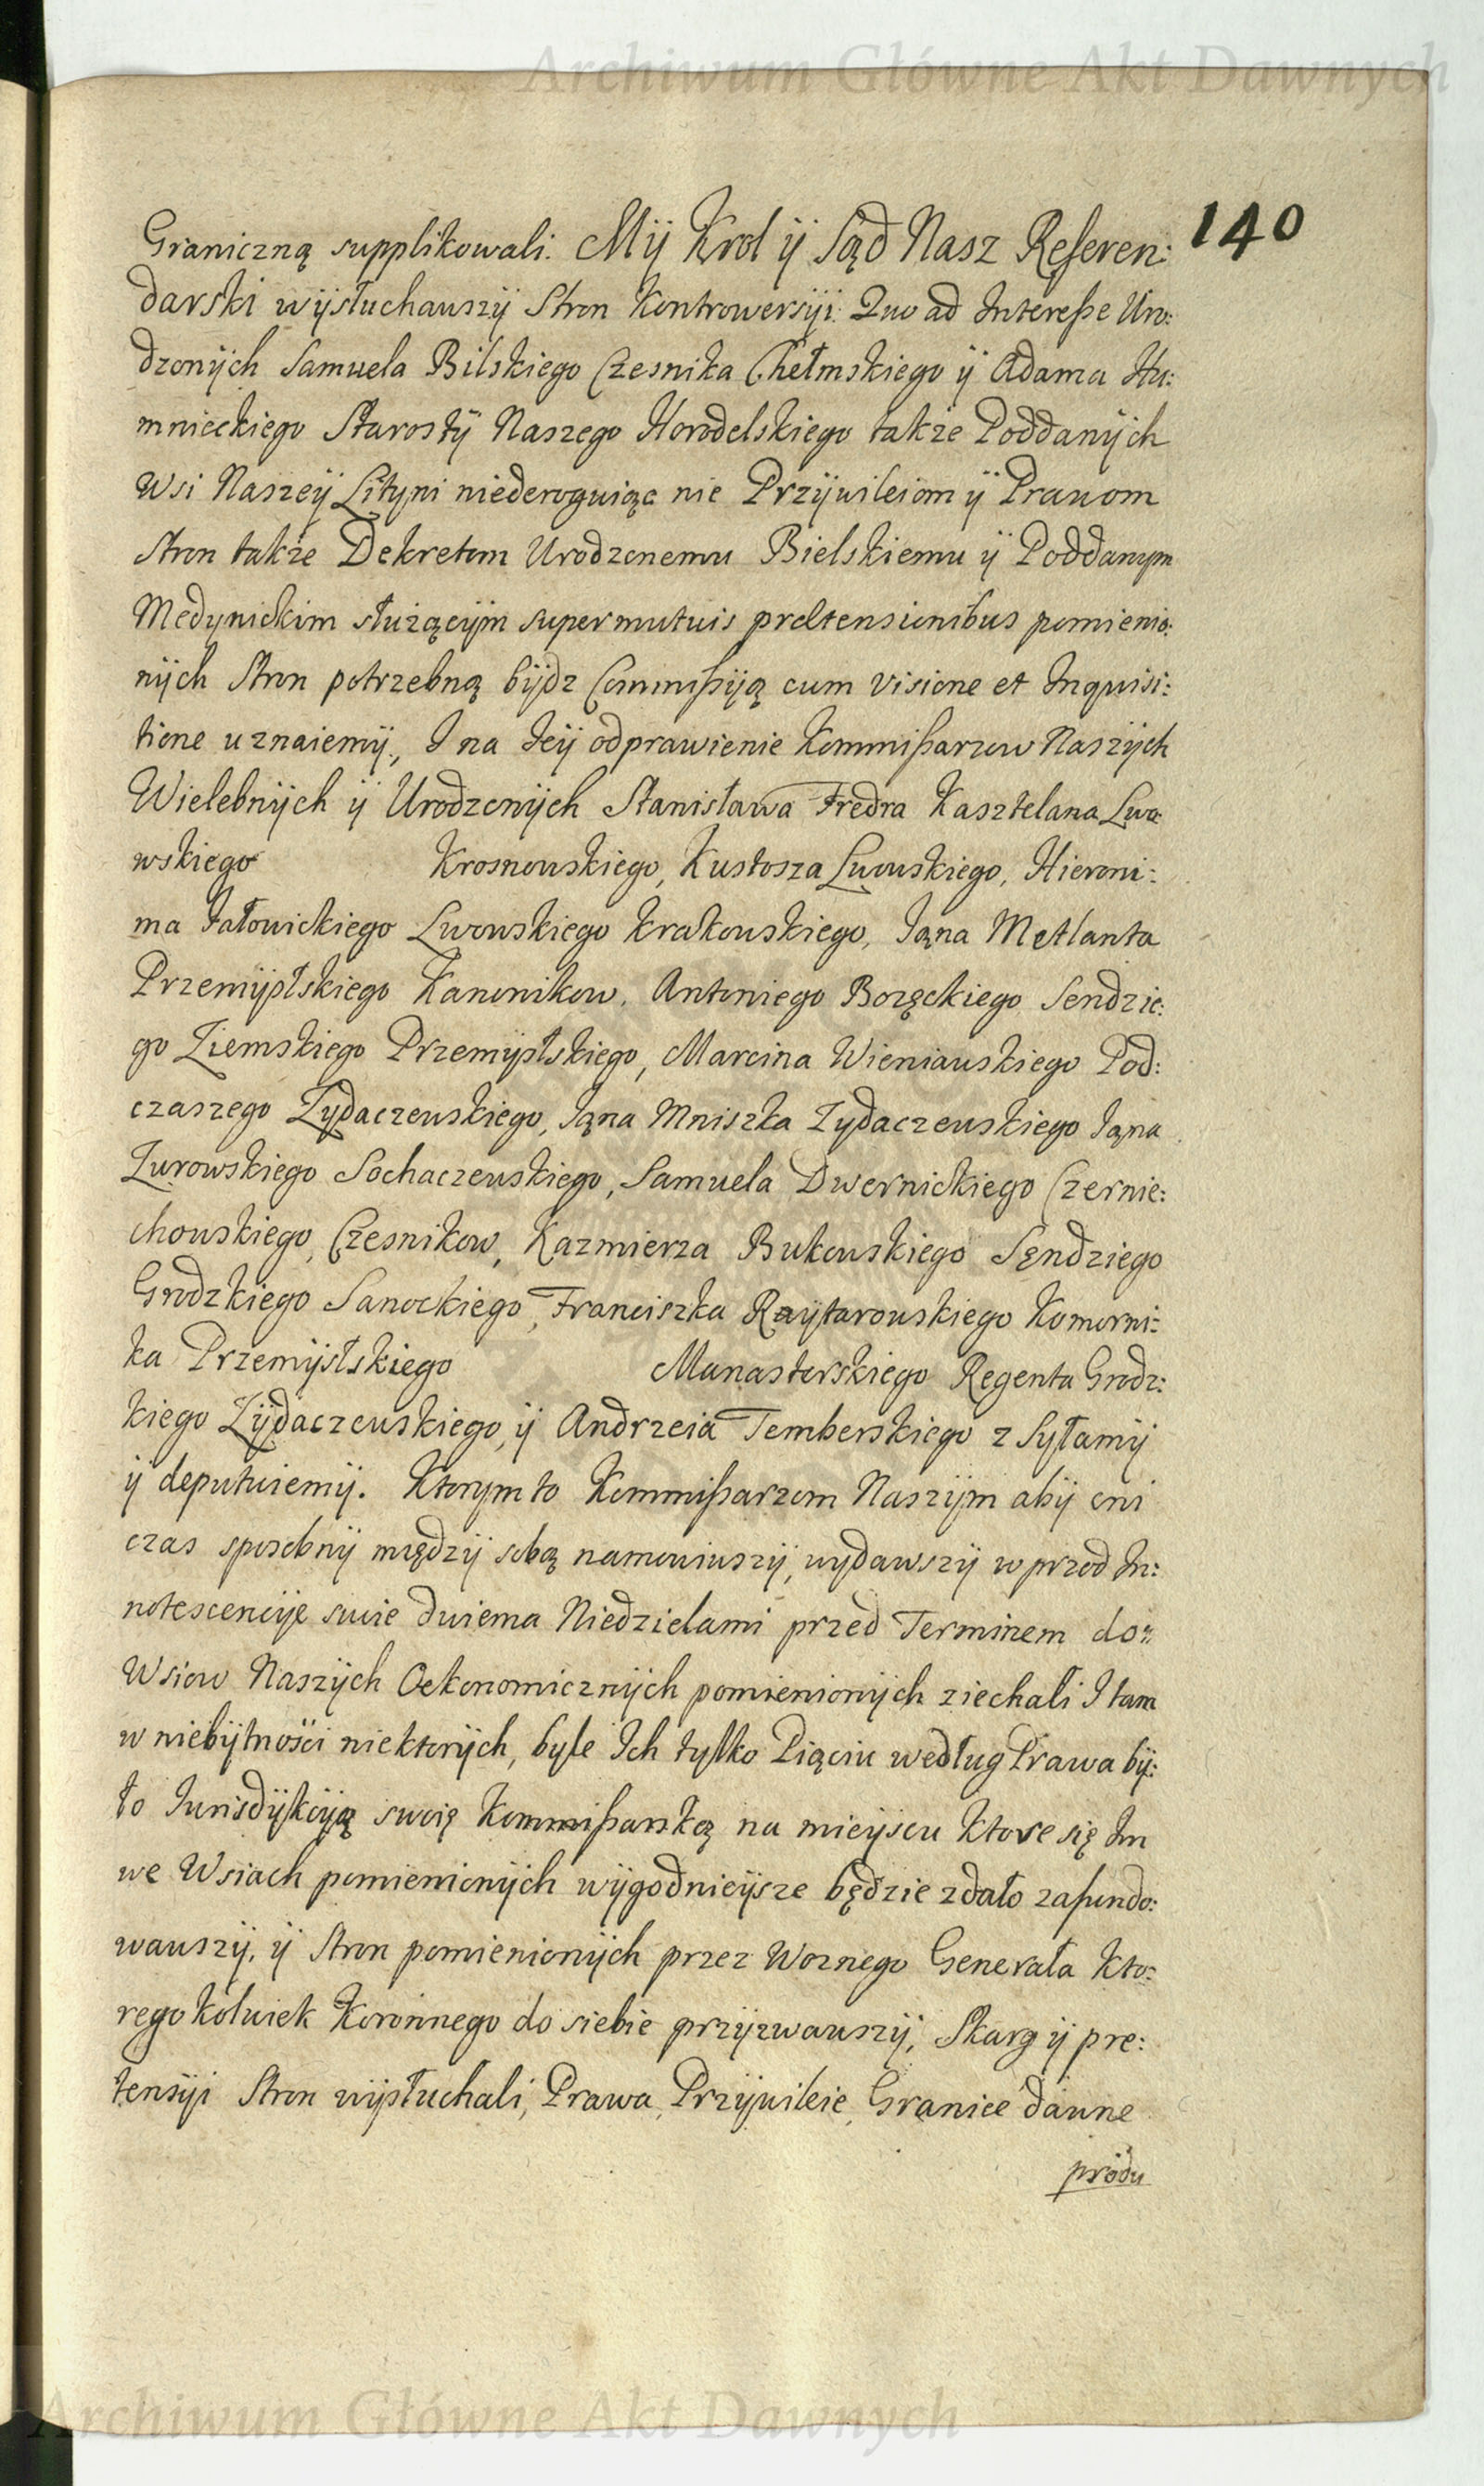 Archiwum Główne Akt Dawnych
140
Graniczną supplikowali. My Krol y Sąd Nasz Referen:
darski wysłuchawszy Stron Kontrowersyi. Quo ad Interesse Uro:
dzonych Samuela Bilskiego Czesnika Chełmskiego y Adama Hu:
mnieckiego Starosty Naszego Horodelskiego także Poddanych
Wsi Naszey Lityni niederoguiąc nic Przywileiom y Prawom
Stron także Dekretom Urodzonemu Bielskiemu y Poddanym
Medynickim służącym super mutuis prœtensionibus pomienio:
nych Stron potrzebną bydz Commissyą cum visione et Inquisi:
tione uznaiemy, I na Iey odprawienie Kommissarzow Naszych
Wielebnych y Urodzonych Stanisława Fredra Kasztelana Lwo
wskiego Krosnowskiego, Kustosza Lwowskiego, Hieroni:
ma Jałowickiego Lwowskiego Krakowskiego, Jana Metlanta
Przemyslskiego Kanonikow, Antoniego Borzęckiego Sendzie:
go Ziemskiego Przemysłskiego, Marcina Wieniawskiego Pod:
czaszego Zydaczewskiego, Jana Mniszka Zydaczewskiego Jana
Zurowskiego Sochaczewskiego, Samuela Dwernickiego Czernie:
chowskiego, Czesnikow, Kazmierza Bukowskiego Sędziego
Grodzkiego Sanockiego, Franciszka Raytarowskiego Komorni:
ka Przemysłskiego Manasterskiego Regenta Grodz:
kiego Zydaczewskiego, y Andrzeia Temberskiego z Syłamy
y deputuiemy. Ktorym to Kommissarzom Naszym aby oni
czas sposobny między sobą namowiwszy, wydawszy wprzod In:
notescencye swie dwiema Niedzielami przed Terminem do:
Wsiow Naszych Oekonomicznych pomienionych ziechali I tam
w niebytności niektorych, byle Ich tylko Piąciu według Prawa by:
ło Iurisdykcyą swoię Kommissarską na mieyscu Ktore się Im
we Wsiach pomienionych wygodnieysze będzie zdało zafundo:
wawszy, y Stron pomienionych przez Woznego Generała Kto:
rego kolwiek Koronnego do siebie przyzwawszy, Skarg y pre:
tensyi Stron wysłuchali, Prawa, Przywileie, Granice dawne
produ
Archiwum Główne Akt Dawnych